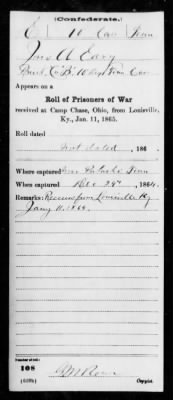 (Confederate.)
C 10 Cav Tenn
Jno A
Appears on a
Roll of Prisoners of War
received at Camp Chase, Ohio, from Louisville,
Ky., Jan. 11, 1865.
Roll dated
Not dated, 186 .
Where captured Near Pulaski Tenn
When captured Dec 1864.
Remarks: Received from Louisville Ky
Jany 11.
Number of roll:
108
Copyist.